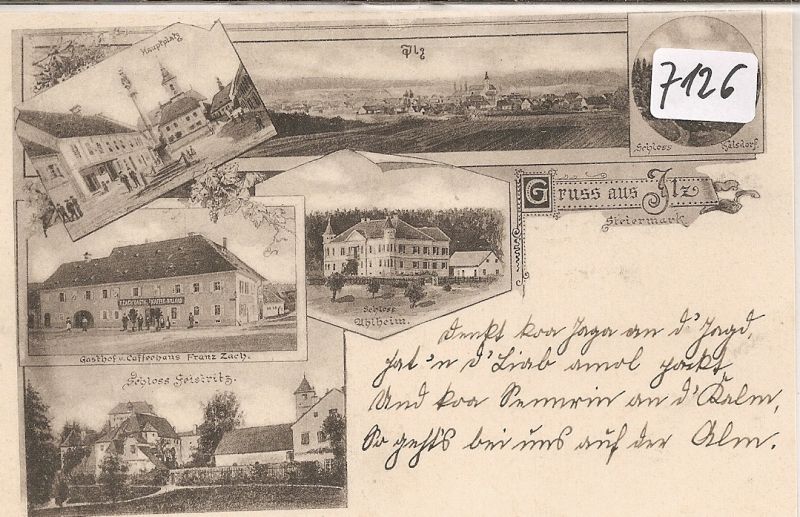 Hauptplatz
Ilz
7126
Schloss Kalsdorf.
Gruss aus Ilz
Steiermark
Schloss
Uhlheim.
Gasthof u. Caffeehaus Franz Zach.
Schloss Feistritz.
Denkt koa Jaga an d' Jagd,
hat 'n d' Liab amol packt
Und koa Sennrin an d' Kalm,
So geht's bei uns auf der Alm.